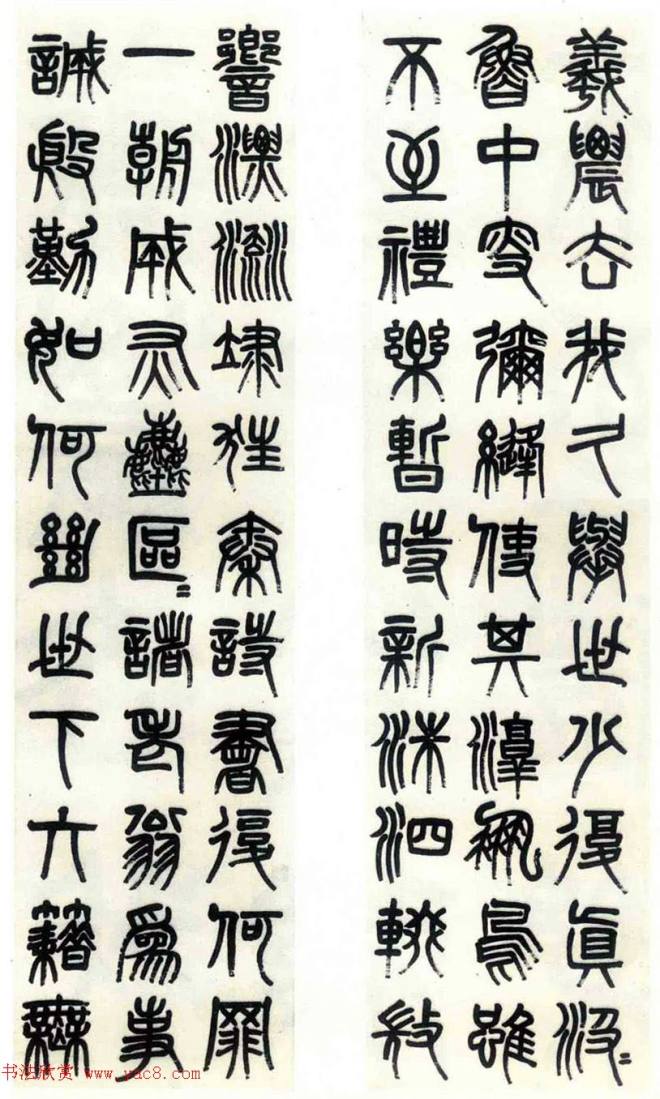 羲農去我久舉世少復眞汲〻
魯中叟彌縫使其淳鳳鳥雖
不至禮樂暫時新洙泗輟微
響漂流逮狂秦詩書復何罪
一朝成灰塵區〻諸老翁爲事
誠殷勤如何絕世下六籍無
书法欣赏 www.yac8.com